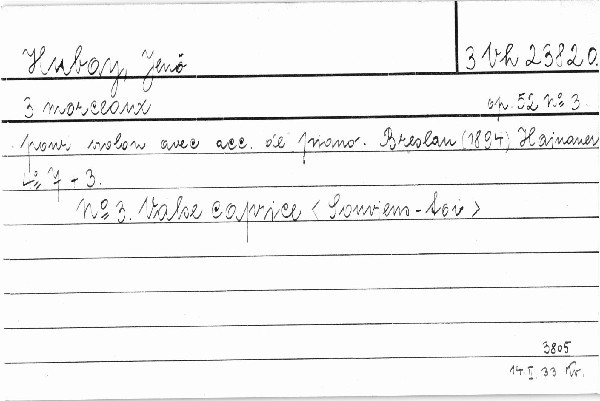 Hubay, Jenö
3 Vh 23820.
3 morceaux op. 52 No 3.
pour violon avec acc. de piano. Breslau (1894) Hainauer
4o 7 + 3.
No 3. Valse caprice < Souviens-toi >
3805
14.I.33 Kr.